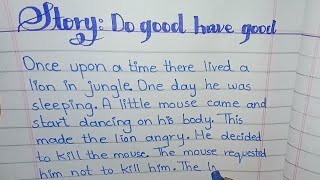 Story: Do good have good
Once upon a time there lived a
lion in jungle. One day he was
sleeping. A little mouse came and
start dancing on his body. This
made the lion angry. He decided
to kill the mouse. The mouse requested
him not to kill him. The